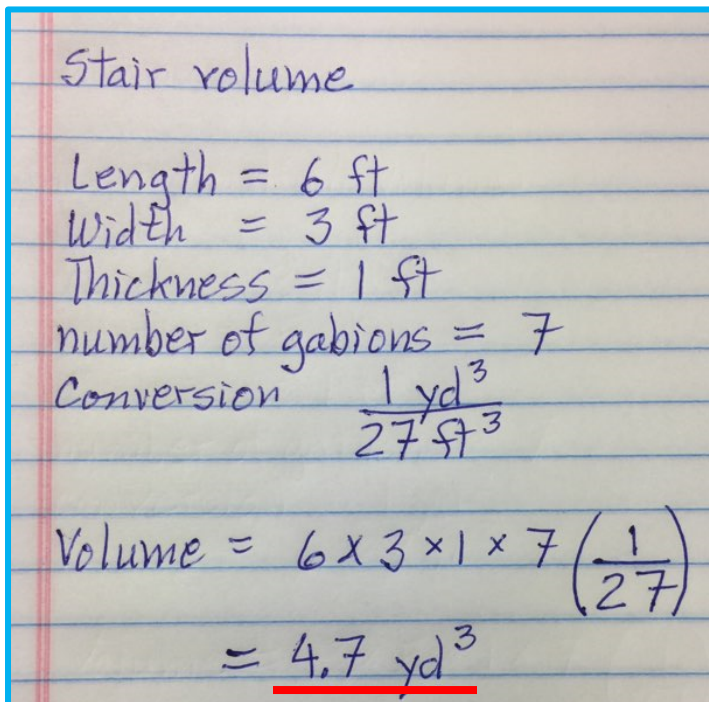 Stair volume
Length = 6 ft
Width = 3 ft
Thickness = 1 ft
number of gabions = 7
Conversion 1 yd³ / 27 ft³
Volume = 6 x 3 x 1 x 7 (1/27)
= 4.7 yd³